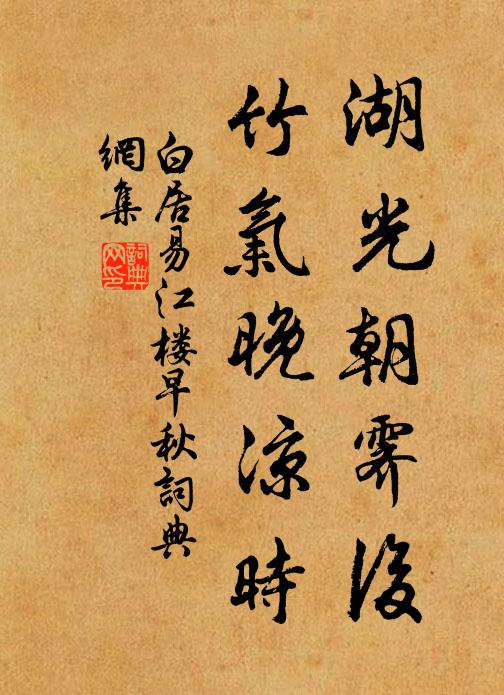 湖光朝霽後
竹氣晚涼時
白居易江楼早秋詞典
網集
詞典
网印